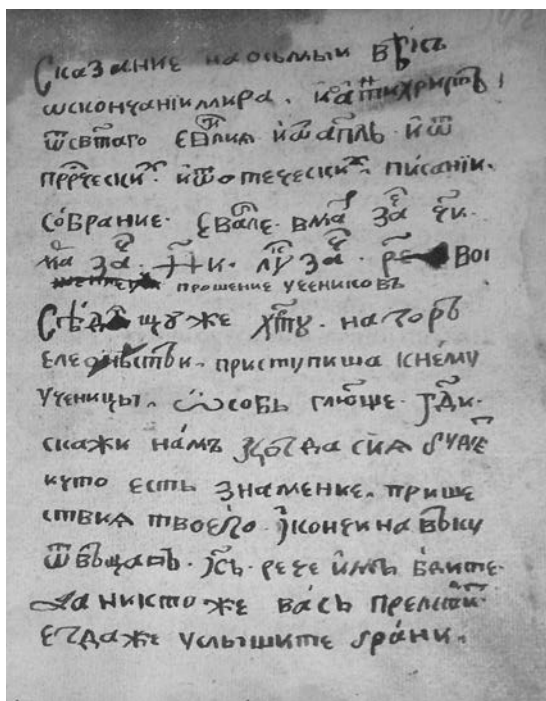 Сказание наосьмыи вѣкъ
ѡскончанїимира. иѡа҆тихритѣ
ѿсвтаго еѵⷢ҇лия иѿапⷭ҇лъ. иѿ
прⷪ҇рческиⷯ. иѿотеческиⷯ. писанїи.
собрание. Еѵⷢ҇але. вмаⷴ҇ за҃ чи.
за҃. лꙋ за҃. вои
прошение учениковъ
Сѣдѧщу же хрⷭ҇ту. на горѣ
приступиша кнему
ученицы. ѡсобь глюще.
скажи намъ когда сия буде
кито есть знамение. прише
ствия твоего. iкончина вѣку
ѿвѣщавъ. Iс҃ъ. рече имъ блюдите.
Да никто же васъ прельсти
Егдаже услышите брани.